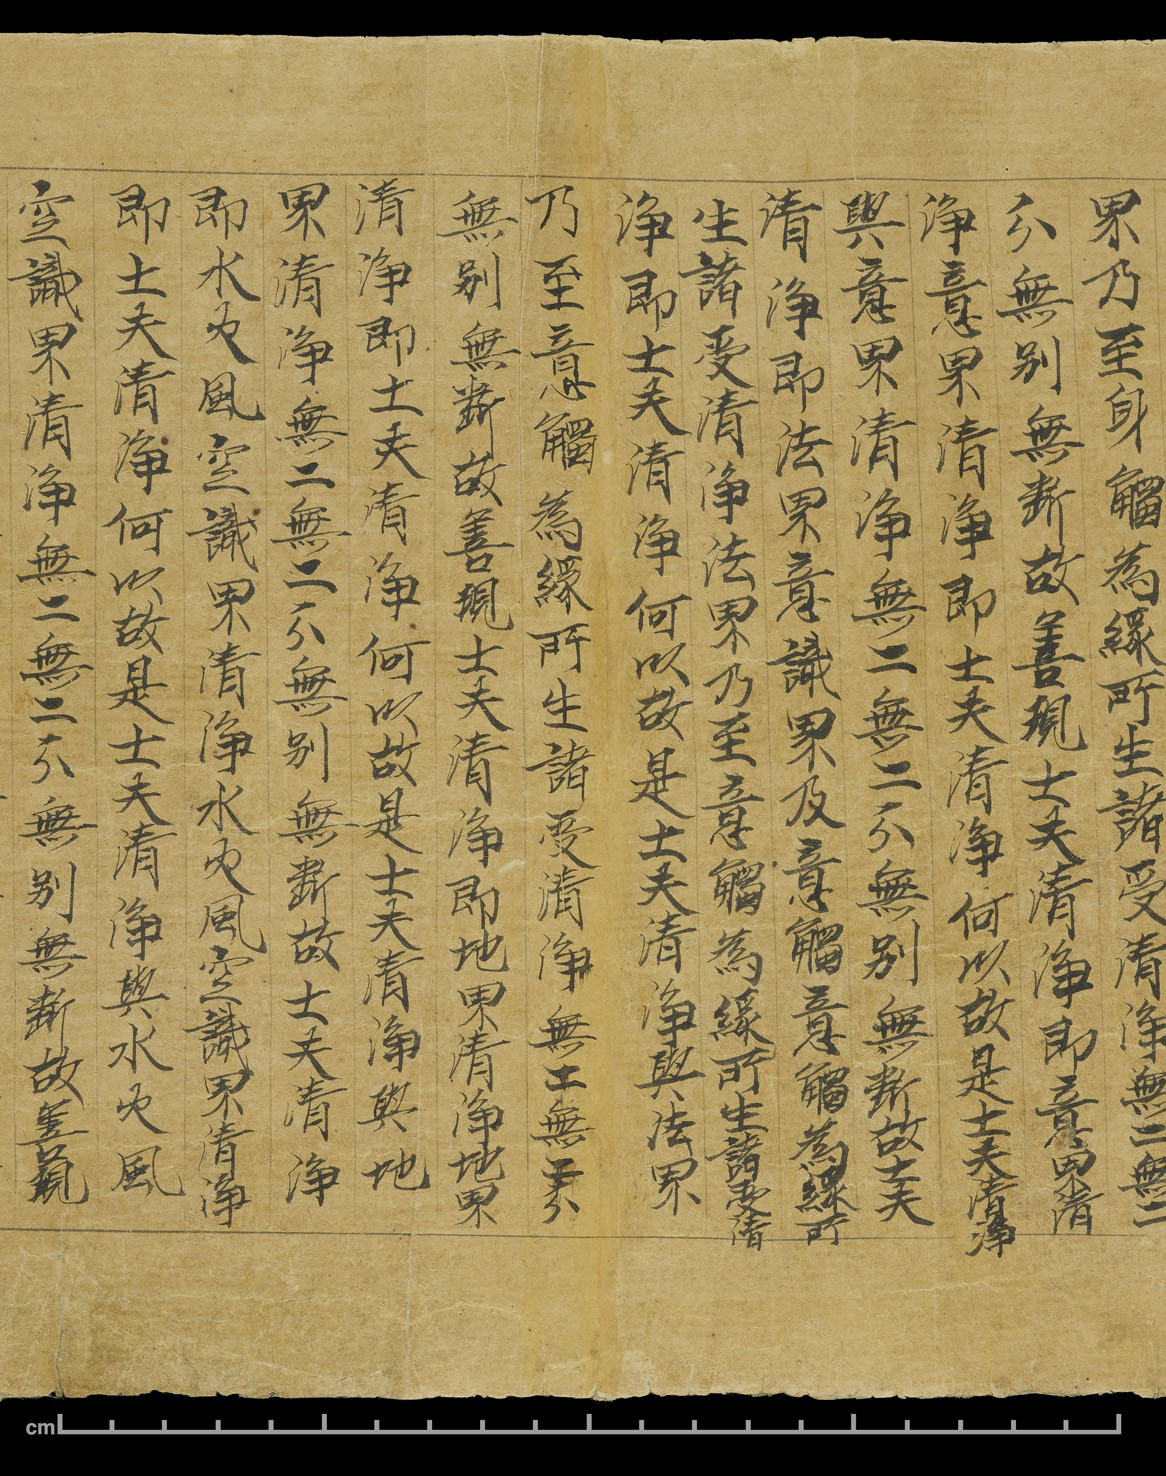 界乃至身觸為緣所生諸受清淨無二無二
尒無別無斷故善現士夫清淨即意界清
淨意界清淨即士夫清淨何以故是士夫清淨
與意界清淨無二無二尒無別無斷故士夫
清淨即法界意識界及意觸意觸為緣所
生諸受清淨法界乃至意觸為緣所生諸受清
淨即士夫清淨何以故是士夫清淨與法界
乃至意觸為緣所生諸受清淨無二無二尒
無別無斷故善現士夫清淨即地界清淨地界
清淨即士夫清淨何以故是士夫清淨與地
界清淨無二無二尒無別無斷故士夫清淨
即水火風空識界清淨水火風空識界清淨
即士夫清淨何以故是士夫清淨與水火風
空識界清淨無二無二尒無別無斷故善現